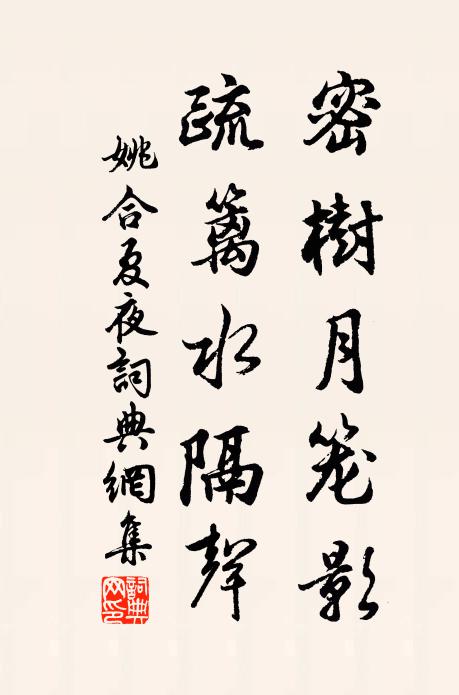 密樹月笼影
疏籬水隔聲
姚合夏夜詞典網集
詞典網印